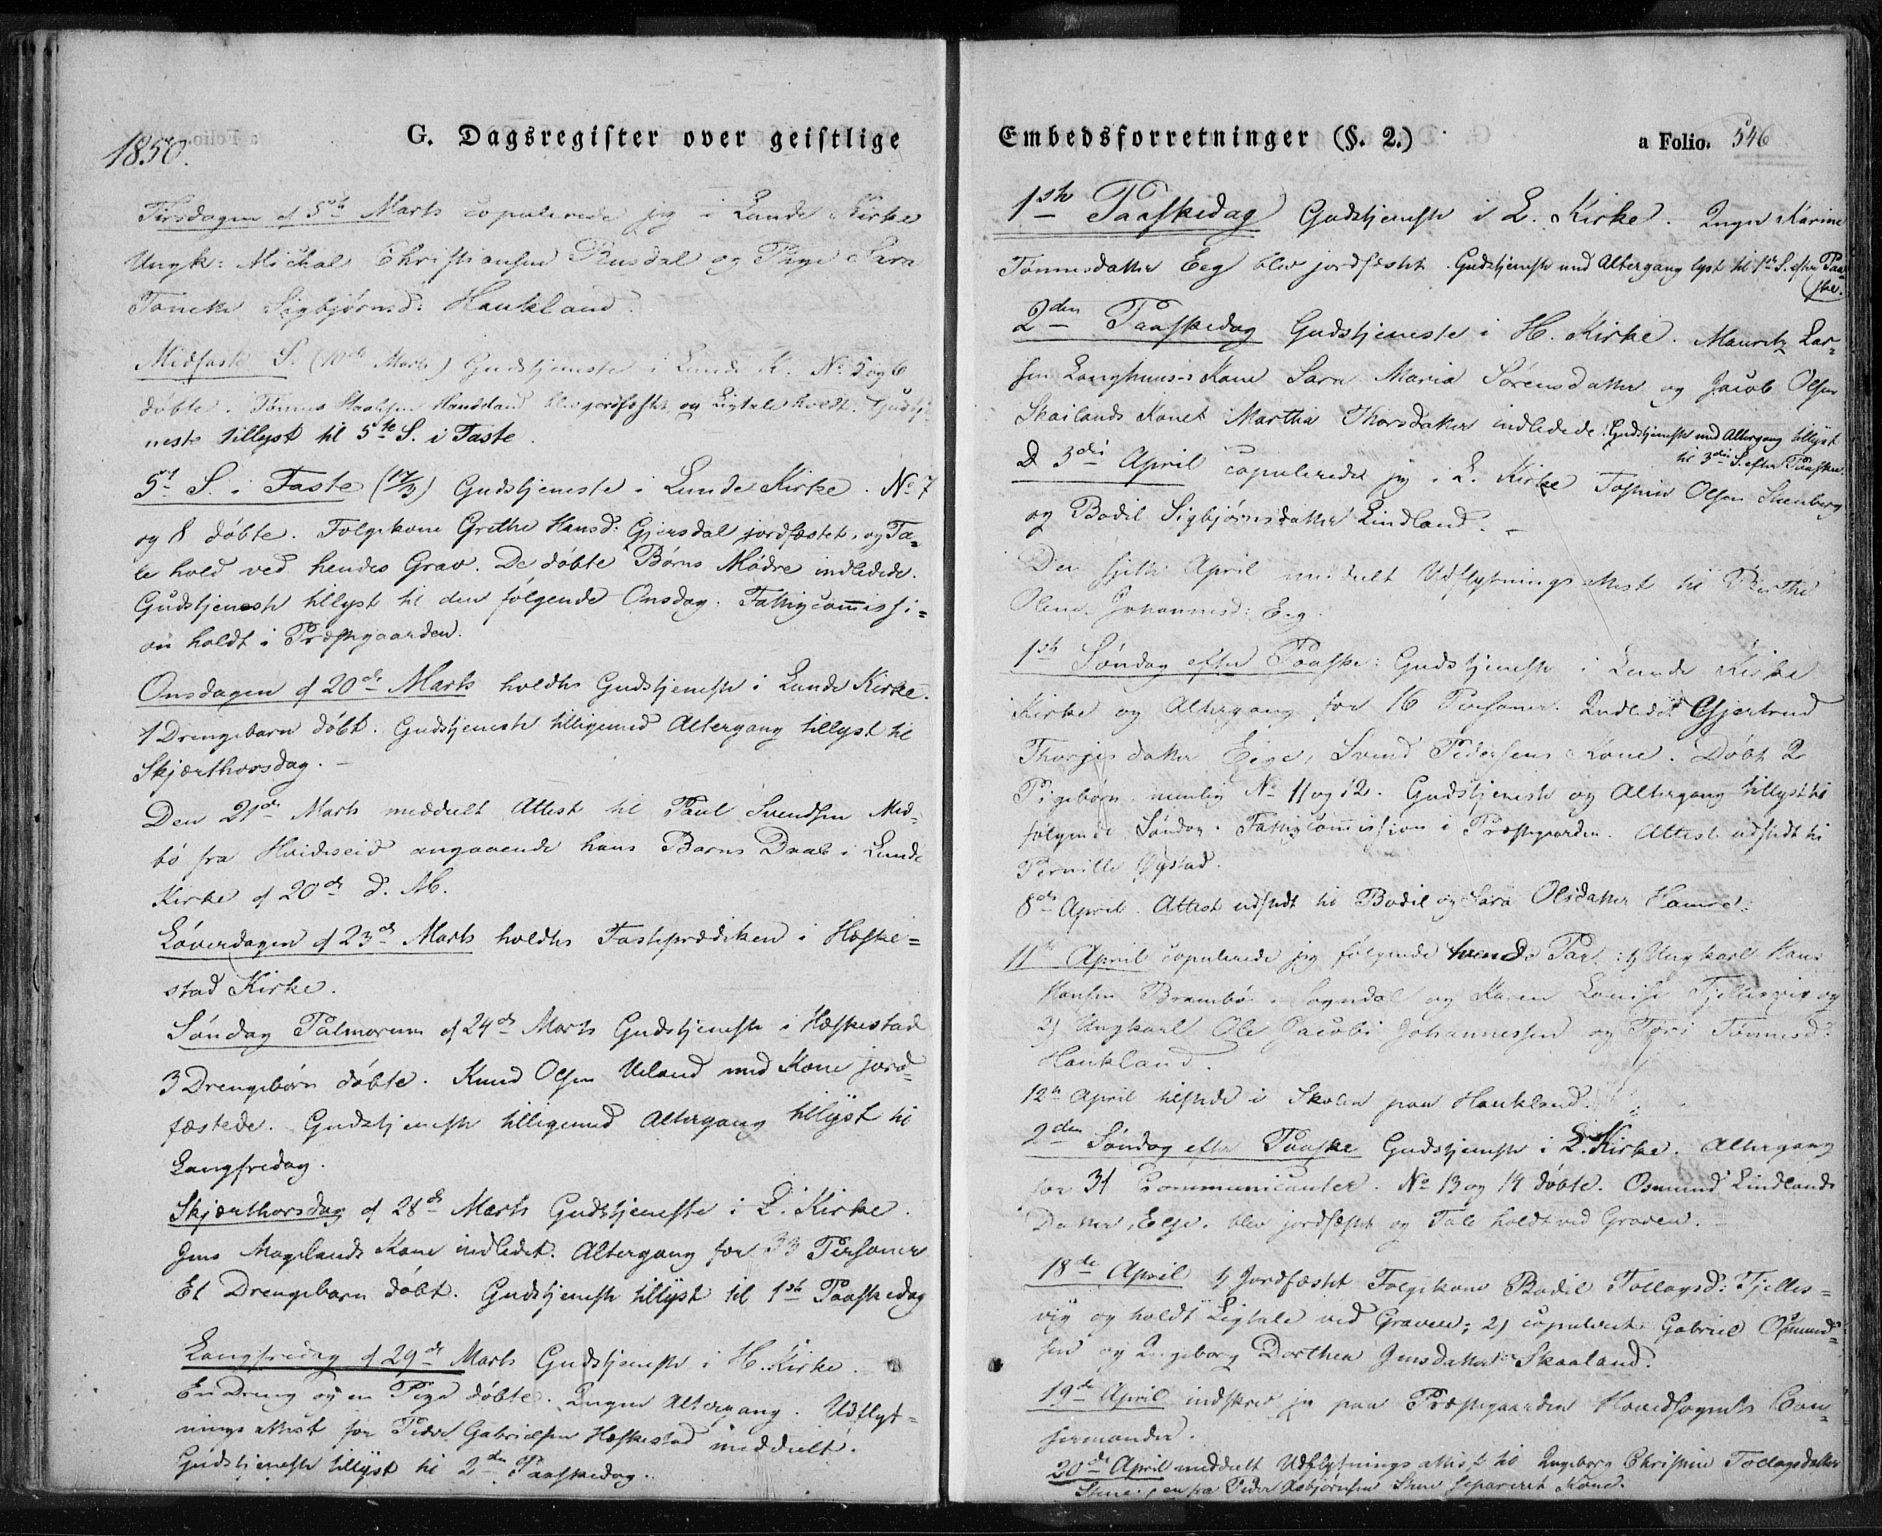 1850.
G. Dagsregister over geistlige
Tirsdagen d 5te Marts copulerede jeg i Lunde Kirke
Ungk: Michal Christiansen Rusdal og Pige Sara
Tonette Sigbjørnsd: Haukland.
Midfaste S. (10de Marts) Gudstjeneste i Lunde K. No 5 og 6
døbte. Tønnes blev jordfæstet og Ligtale holdt. Gudstje-
neste tillyst til 5te S. i Faste.
5te S. i Faste (17/3) Gudstjeneste i Lunde Kirke. No 7
og 8 døbte. Folgekone Grethe Hansd: Gjersdal jordfæstet, og Ta-
le hold ved hendes Grav. De døbte Børns Mødre indledede.
Gudstjeneste tillyst til den følgende Onsdag. Fattigcommissi-
on holdt i Præstgaarden.
Onsdagen d 20de Marts holdtes Gudstjeneste i Lunde Kirke.
1 Drengebarn døbt. Gudstjeneste tilligemed Altergang tillyst til
Skjærthorsdag. -
Den 21de Marts meddeelt Attest til Paul Svendsen Mid-
bø fra Hvideseid angaaende hans Barns Daab i Lunde
Kirke d 20de d. M.
Løverdagen d 23de Marts holdtes Fasteprædiken i Hæske-
stad Kirke.
Søndag Palmarum d 24de Marts Gudstjeneste i Hæskestad
3 Drengebørn døbte. Knud Olsen Ueland med Kone jord-
fæstede. Gudstjeneste tilligemed Altergang tillyst til
Langfredag.
Skjærthorsdag d 28de Marts Gudstjeneste i L. Kirke.
Jens Magelands Kone indledet. Altergang for 33 Personer
Et Drengebarn døbt. Gudstjeneste tillyst til 1ste Paaskedag
Langfredag d 29de Marts Gudstjeneste i H. Kirke.
En Dreng og en Pige døbte. Ingen Altergang. Udflyt-
nings attest for Peder Gabrielsen Hæskestad meddeelt.
Gudstjeneste tillyst til 2den Paaskedag.
Embedsforretninger (§. 2.)
a Folio. 546
1ste Paaskedag Gudstjeneste i L. Kirke. Karine
Tønnesdatter Eeg blev jordfæstet. Gudstjeneste med Altergang lyst til 1ste S. efter Paa-
ske.
2den Paaskedag Gudstjeneste i H. Kirke. Mauritz Lar-
sen Langhuus's Kone Sara Maria Sørensdatter og Jacob Olsen
Skailands Kone Martha Thorsdatter indledede. Gudstjeneste med Altergang tillyst
til 3die S. efter Paaske.
D 3die April copulerede jeg i L. Kirke Olsen
og Bodil Sigbjørnsdatter Lindland. -
Den sjette April meddeelt Udflytningsattest til Berthe
Olene Johannesd: Eeg.
1ste Søndag efter Paaske: Gudstjeneste i Lunde Kirke
Kirke og Altergang for 16 Personer. Indledet Gjertrud
datter Eige, Svend Pedersens Kone. Døbt 2
Pigebørn nemlig No 11 og 12. Gudstjeneste og Altergang tillyst til
følgende Søndag. Fattigcommission i Præstgaarden. Attest udstedt til
Pernille Øgstad.
8de April. Attest udstedt til Bodil og Sara Olsdatter
11te April copulerede jeg følgende tvende Par: 1) Ungkarl Hans
Hansen Brambø i Sogndal og Karen Louise Fjellesvig og
2) Ungkarl Ole Jacob Johannessen og Tønnesd:
Haukland.
12te April tilstede i Skolen paa Haukland.
2den Søndag efter Paaske Gudstjeneste i L. Kirke. Altergang
for 31 Communicanter. No 13 og 14 døbte. Osmund Lindlands
Datter Else, blev jordfæstet og Tale holdt ved Graven.
18de April 1) Jordfæstet Folgekone Bodil Tollagsd: Fjelles-
vig og holdt Ligtale ved Graven; 2) copuleret Gabriel Osmund-
sen og Ingeborg Dorthea Jensdatter Skaaland.
19de April indskrev jeg paa Præstgaarden Hovedsognets Con-
firmander.
20de April meddeelt Udflytningsattest til Ingeborg Christine Tollagsdatter
Peder Asbjørnsen Stene separeret Kone.